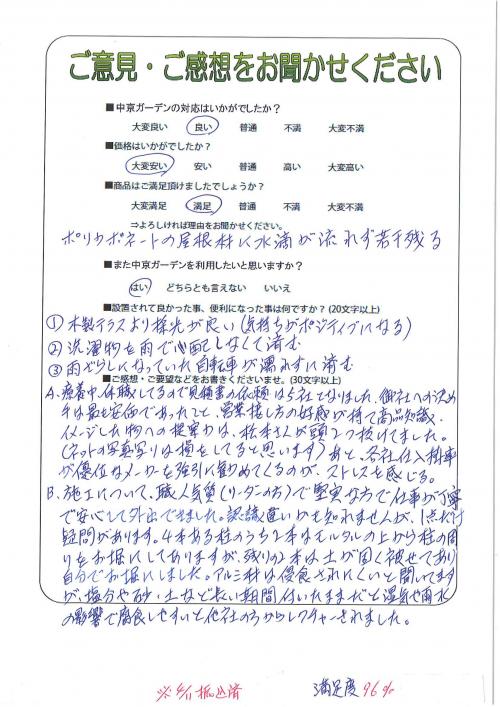 ご意見・ご感想をお聞かせください
■中京ガーデンの対応はいかがでしたか?
大変良い 良い 普通 不満 大変不満
■価格はいかがでしたか?
大変安い 安い 普通 高い 大変高い
■商品はご満足頂けましたでしょうか?
大変満足 満足 普通 不満 大変不満
⇒よろしければ理由をお聞かせください。
ポリカボネートの屋根材に水滴が流れず若干残る
■また中京ガーデンを利用したいと思いますか?
はい どちらとも言えない いいえ
■設置されて良かった事、便利になった事は何ですか?(20文字以上)
① 木製テラスより採光が良い(気持ちがポジティブになる)
② 洗濯物を雨で心配しなくて済む
③ 雨ざらしになっていた自転車が濡れずに済む
■ご感想・ご要望などをお書きくださいませ。(30文字以上)
A. 療養中、休職してるので見積書の依頼は5社となりました。御社への決め
手は最も安価であったことと、営業接し方の好感が持て商品知識、
イメージした物への提案力は、松本さんが頭2つ抜けてました。
(ネットの写真写りは損をしてると思います)あと、各社仕入掛率
が優位なメーカーを強引に勧めてくるのが、ストレスを感じる。
B. 施工について、職人気質(リーダーの方)で堅実な方で仕事が丁寧
で安心して外出できました。認識違いかも知れませんが、1点だけ
疑問があります。4本ある柱のうち2本はモルタルの上から柱の周
りをお堀にしてありますが、残りの2本は土が固く被せてあり
自分でお堀にしました。アルミ材は侵食されにくいと聞いてます
が、塩分や砂・土など長い期間付いたままだと湿気や雨水
の影響で腐食しやすいと他社の方からレクチャーされました。
※ 振込済
満足度 96%